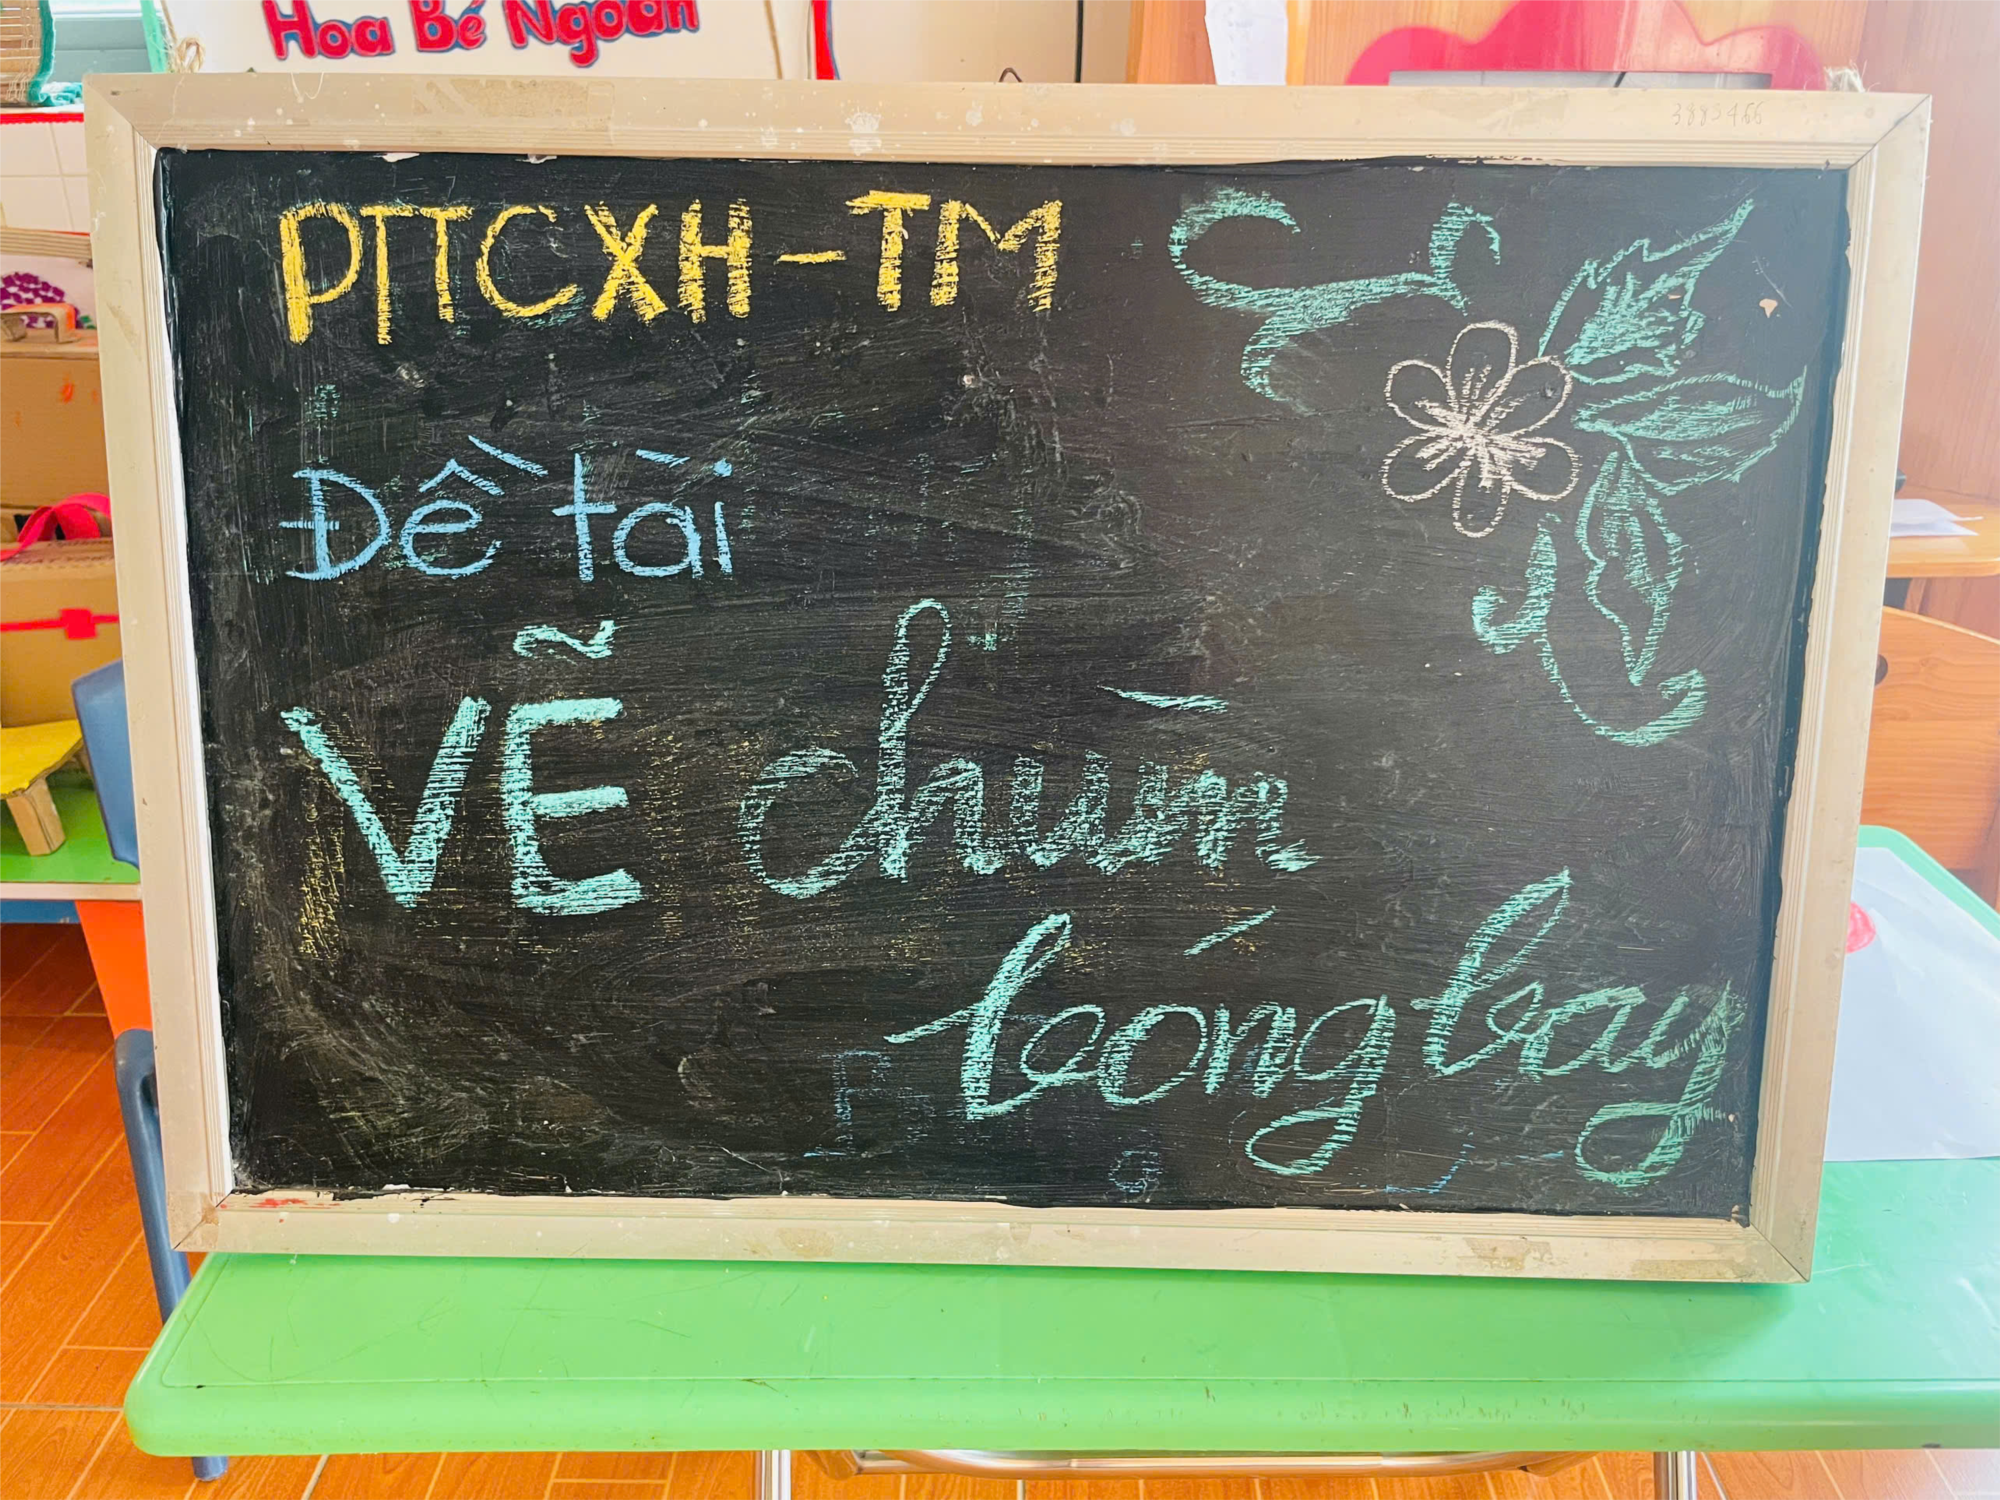 Hoa Bé Ngoan
3883466
PTTCXH-TM
Đề tài
VẼ chùm
bóng bay